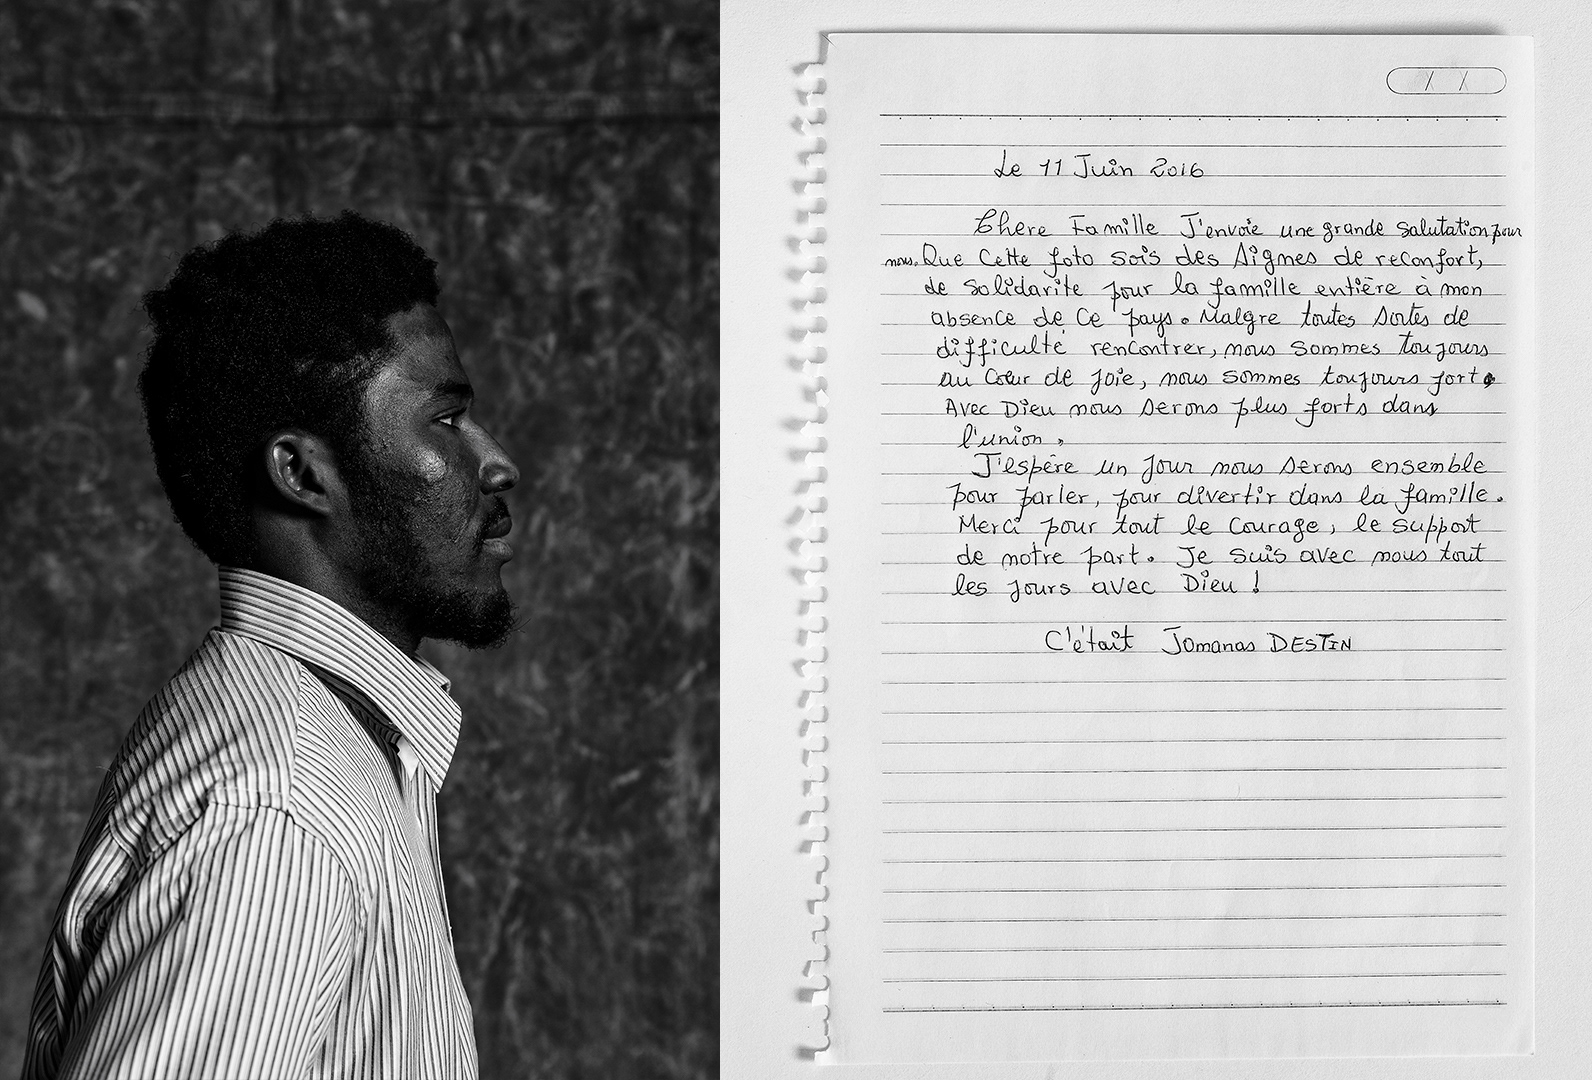 Le 11 Juin 2016
Chere Famille J'envoie une grande Salutation pour
nous. Que Cette foto sois des Signes de reconfort,
de Solidarite pour la famille entière à mon
absence de Ce pays. Malgre toutes Sortes de
difficulté rencontrer, nous Sommes toujours
au Cœur de Joie, nous Sommes toujours fort.
Avec Dieu nous Serons plus forts dans
l'union.
J'espère un Jour nous Serons ensemble
pour parler, pour divertir dans la famille.
Merci pour tout le Courage, le support
de notre part. Je Suis avec nous tout
les jours avec Dieu !
C'était Jomanas DESTIN